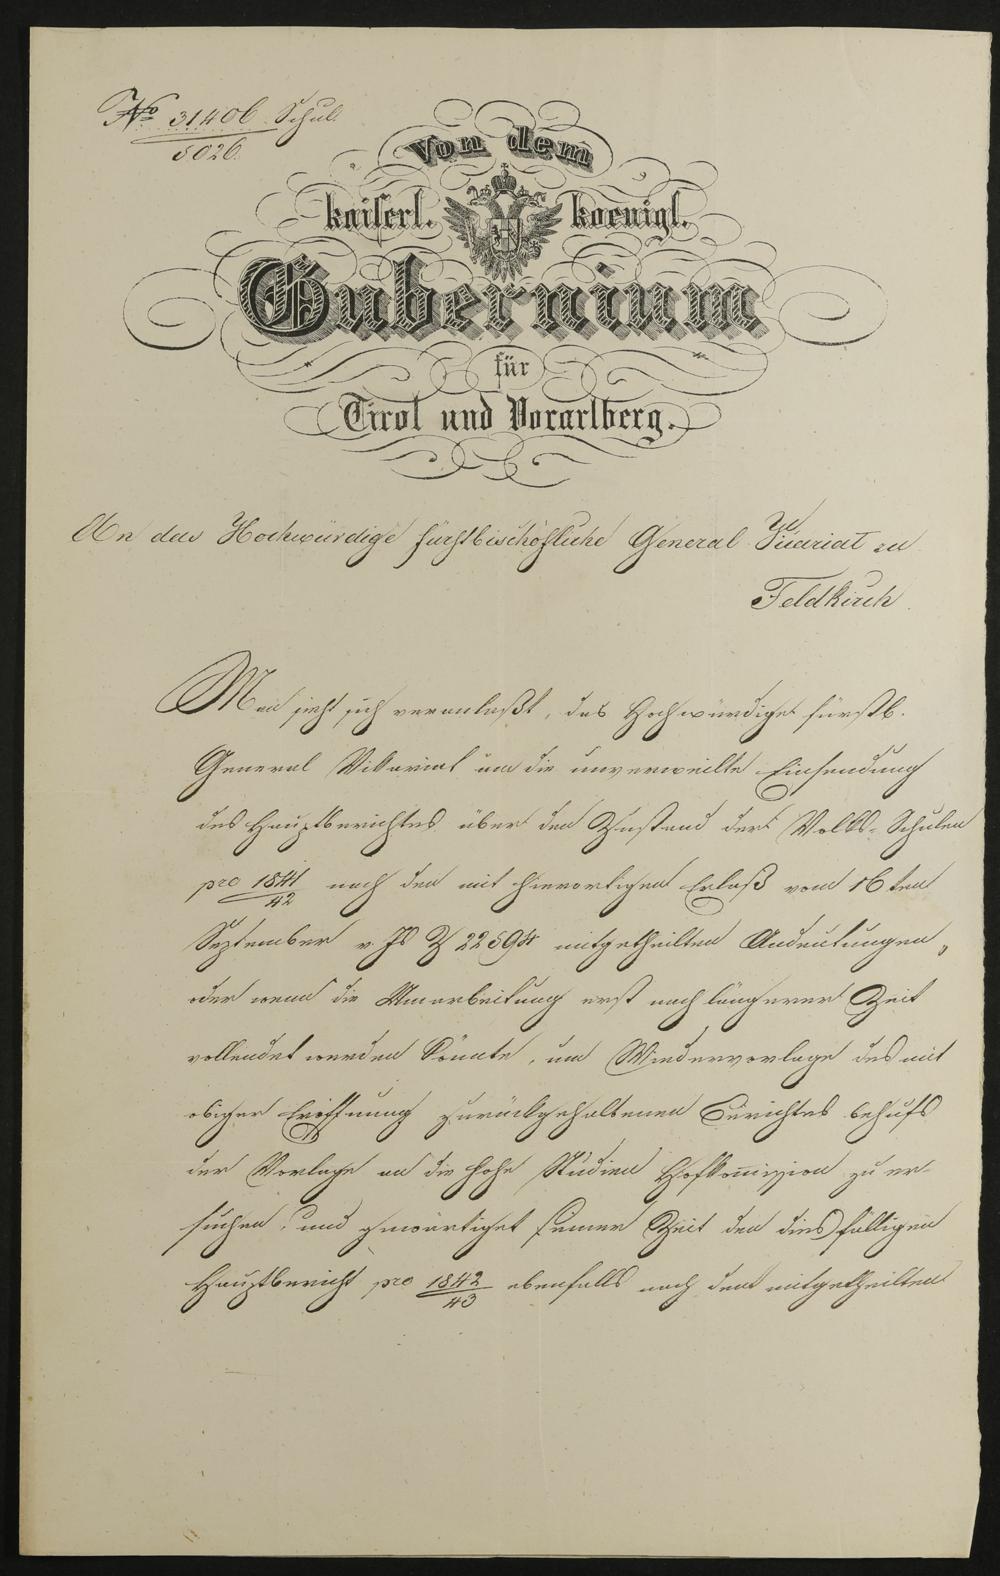 No 31406 Schul
5026.
Von dem
kaiserl. koenigl.
Gubernium
für
Tirol und Vorarlberg.
An das Hochwürdige fürstbischöfliche General Vicariat zu
Feldkirch.
Man sieht sich veranlaßt, das Hochwürdige fürstb.
General Vikariat um die unverweilte Einsendung
des Hauptberichtes über den Zustand der Volks-Schulen
pro 1841/42 nach den mit hierortigen Erlaß vom 16ten
September v. Js Z 22594 mitgetheilten Andeutungen,
oder wenn die Umarbeitung erst nach längerer Zeit
vollendet werden könnte, um Wiedervorlage des mit
obiger Eröffnung zurückgehaltenen Berichtes behufs
der Vorlage an die hohe Studien Hofkomission zu er-
suchen, und gewärtiget seiner Zeit den diesfälligen
Hauptbericht pro 1842/43 ebenfalls nach den mitgetheilten